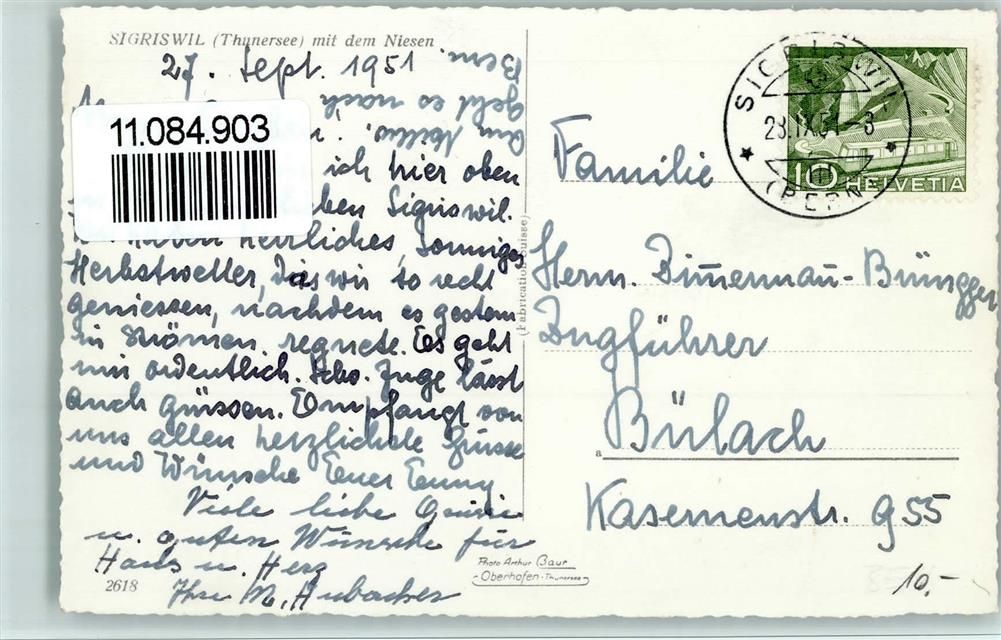 SIGRISWIL (Thunersee) mit dem Niesen
27. Sept. 1951
Bern.
geht es nach
am
11.084.903
ich hier oben
Sigriswil.
haben herrliches, sonniges
Herbstwetter, das wir so recht
geniessen, nachdem es gestern
in Strömen regnete. Es geht
mir ordentlich. Schw. Inge lässt
auch grüssen. Empfangt von
uns allen herzlichste Grüsse
und Wünsche Euer Emmy
Viele liebe Grüsse
u. guten Wünsche für
Haus u. Herz
Ihre M.
2618
(Fabrication Suisse)
Photo Arthur Baur
Oberhofen-Thunersee
SIGRISWIL
28.IX.51-8
(BERN)
10 HELVETIA
Familie
Herrn. Zimermann-Büngger
Zugführer
a Bülach
Kasernenstr. 955
10.-